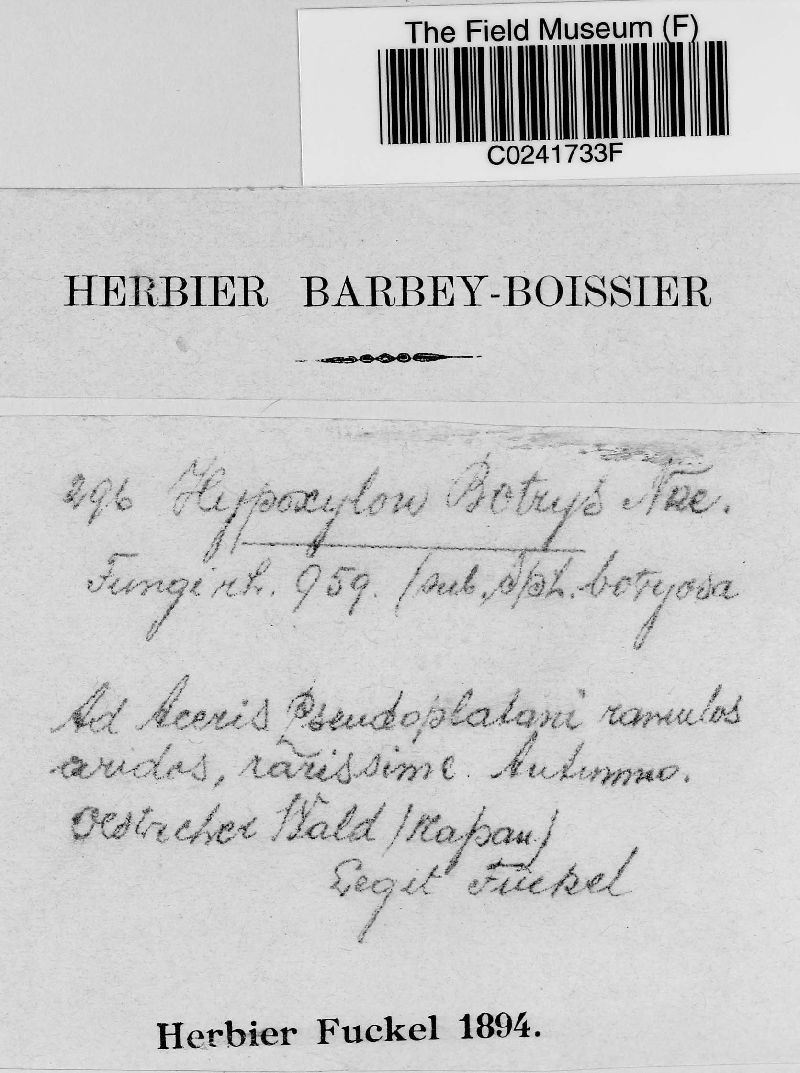 The Field Museum (F)
C0241733F
HERBIER BARBEY-BOISSIER
296 Hypoxylon Botrys Nke.
Fungi rh. 959. (sub. Sph. botryosa
Ad Aceris Pseudoplatani ramulos
aridos, rarissime. Autumno.
Oestricher Wald (Rapan)
Legit Fuckel
Herbier Fuckel 1894.